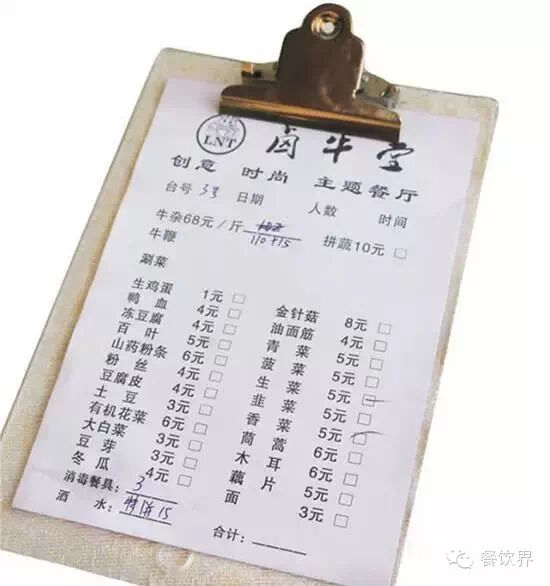 LNT 卤牛堂
创意 时尚 主题餐厅
台号 3号 日期 人数 时间
牛杂68元/斤 110+15 拼蔬10元 □
牛鞭
涮菜
生鸡蛋 1元 □ 金针菇 8元 □
鸭血 4元 □ 油面筋 4元 □
冻豆腐 4元 □ 青菜 5元 □
百叶 5元 □ 菠菜 5元 □
山药粉条 6元 □ 生菜 5元 □
粉丝 4元 □ 韭菜 5元 □
豆腐皮 4元 □ 香菜 5元 □
土豆 3元 □ 茼蒿 6元 □
有机花菜 6元 □ 木耳 6元 □
大白菜 3元 □ 藕片 5元 □
豆芽 3元 □ 面 3元 □
冬瓜 4元 □
消毒餐具: 3
酒水: 15 合计:
餐饮界